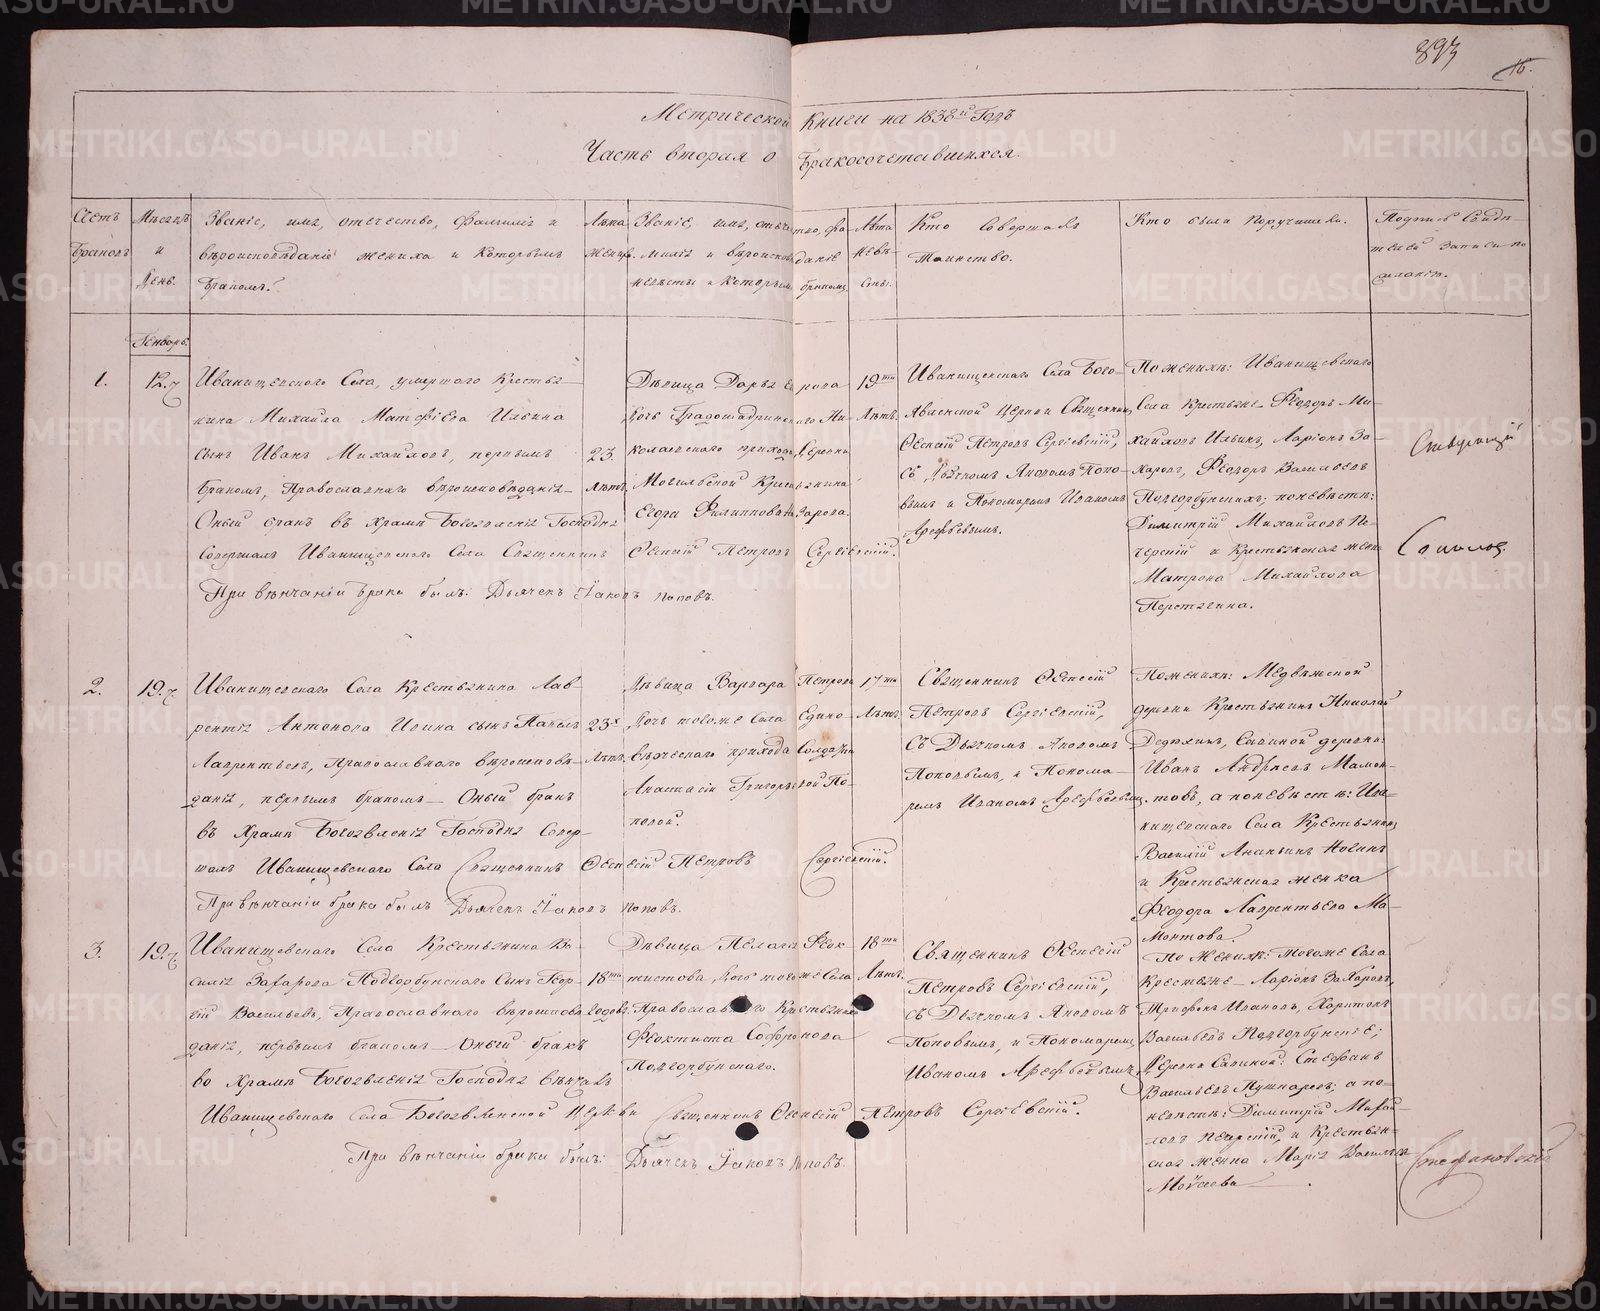 893
16.
Метрической Книги на 1838й Годъ
Часть вторая о Бракосочетавшихся.
Счетъ Браковъ
Мѣсяцъ и День.
Званіе, имя, отчество, фамилія и
вѣроисповѣданіе жениха и которымъ
бракомъ.
Лѣта Жениха.
Званіе, имя, отчество, фа-
милія и вѣроисповѣданіе
невѣсты и которымъ бракомъ
Лѣта невѣсты.
Кто совершалъ
Таинство.
Кто были поручители.
Подпись Свидѣ-
телей записи по
желанію.
Генварь.
1.
12.
Иванищевского Села, умершаго Крестья-
нина Михайла Матфіева Ильина
сынъ Иванъ Михайловъ, первымъ
бракомъ, Православнаго вѣроисповѣданія
Оный бракъ въ Храмѣ Богоявленія Господня
Совершалъ Иванищевского Села Священникъ Ѳеспсій Петровъ Сергіевскій.
При вѣнчаніи брака былъ: Дьячекъ Іаковъ Поповъ.
23. Лѣтъ.
Дѣвица Дарья Егорова
дочь Градошадринского Ни-
колаевского прихода, деревни
Могильской Крестьянина
Егора Филиппова Назарова.
19ти Лѣтъ.
Иванищевского Села Бого-
явленской Церкви Священникъ
Петровъ Сергіевскій,
съ Дьячкомъ Яковомъ Попо-
вымъ и Пономаремъ Иваномъ
Арефьевымъ.
По женихѣ: Иванищевского
Села Крестьяне Ѳедоръ Ми-
хайловъ Ильинъ, Ларіонъ За-
харовъ, Ѳедоръ Васильевъ
Подгорбунскихъ; по невѣстѣ:
Димитрій Михайловъ Пе-
черскій и Крестьянская жена
Матрона Михайлова
Перетягина.
2.
19.
Иванищевского Села Крестьянина Лав-
рентія Антонова Ильина сынъ Павелъ
Лаврентьевъ, Православного вѣроисповѣ-
данія, первымъ бракомъ — Оный бракъ
въ Храмѣ Богоявленія Господня Совер-
шалъ Иванищевского Села Священникъ Петровъ Сергіевскій.
При вѣнчаніи брака былъ Дьячекъ Іаковъ Поповъ.
23х Лѣтъ.
Дѣвица Варвара Петрова
дочь тогоже Села Едино-
вѣрческаго прихода Солдатки
Анастасіи Григорьевой По-
повой.
17ти Лѣтъ.
Священникъ
Петровъ Сергіевскій,
съ Дьячкомъ Яковомъ
Поповымъ, и Понома-
ремъ Иваномъ Арефьевымъ.
По женихѣ: Медвѣжской
деревни Крестьянинъ Николай
Дедюхинъ, Савиной деревни:
Иванъ Андреевъ Мамон-
товъ, а по невѣстѣ: Ива-
нищевского Села Крестьянинъ
Василій Ананьинъ
и Крестьянская женка
Ѳеодора Лаврентьева Ма-
монтова.
3.
19.
Иванищевского Села Крестьянина Ва-
силія Захарова Подгорбунского Сынъ Геор-
гій Васильевъ, Православного вѣроисповѣ-
данія, первымъ бракомъ — Оный бракъ
во Храмѣ Богоявленія Господня вѣнчалъ
Иванищевского Села Богоявленской Церкви Священникъ Петровъ Сергіевскій.
При вѣнчаніи брака былъ: Дьячекъ Іаковъ Поповъ.
18ти Годовъ.
Дѣвица Пелагія Ѳеок-
тистова, дочь тогоже Села
Православного Крестьянина
Ѳеоктиста Софронова
Подгорбунского.
18ти Лѣтъ.
Священникъ
Петровъ Сергіевскій,
съ Дьячкомъ Яковомъ
Поповымъ, и Пономаремъ
Иваномъ Арефьевымъ.
По женихѣ: тогоже Села
Крестьяне — Ларіонъ Захаровъ,
Трифонъ Ивановъ, Харитонъ
Васильевъ Подгорбунскіе;
Деревни Савиной: Стефанъ
Васильевъ Пушкаревъ; а по
невѣстѣ: Димитрій Михай-
ловъ Печерскій, и Крестьян-
ская женка Марія Васильева
Мойсеева.